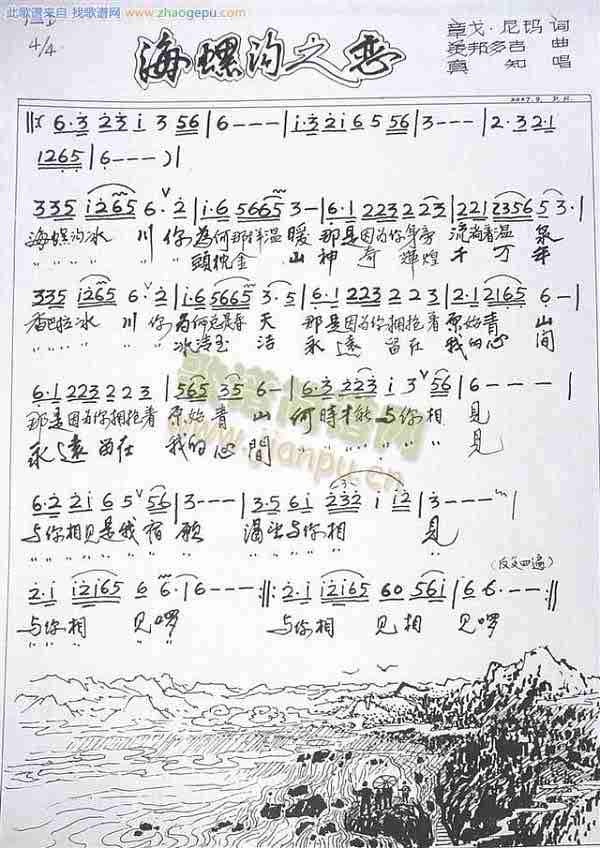 此歌谱来自 找歌谱网
www.zhaogepu.com
4/4
海螺沟之恋
章戈·尼玛 词
美邦多吉 曲
真知 唱
6·3 2 3 i 3 56 | 6 - - - | i·3 2 i 6 5 56 | 3 - - - | 2·3 2·1
1265 | 6 - - - ) |
335 i265 6· 2 | i·6 5665 3 - | 6·1 223 2 23 | 221 2356 5 3· |
海螺沟冰 川 你 為何那样温 暖 那是因为你身旁 流淌着温 泉
" " " " " " 頭枕金 山 神 奇 輝煌 千 万 年
335 i265 6· 2 | i·6 5665 3· 5 | 6·1 223 2 2 3 | 2·1 2165 6 - |
香巴拉冰 川 你 為何总是春 天 那是因为你拥抱着 原始青 山
" " " " " " 冰洁玉 洁 永 遠 留在 我的心 間
6·1 223 2 2 3 | 565 35 6 - | 6·3 223 i 3 56 | 6 - - - |
那是因为你拥抱着 原始青 山 何時才能 与你相 見
永 遠 留在 我的心 間 " " " " " " 見
6·2 2 i 6 5 56 | 3 - - - | 3·5 6 i 232 i i2 | 3 - - - |
与你相見是我宿 願 渴望与你相 見
(反复四遍)
2·i i2165 6 6· | 6 - - - :||: 2·i i2165 60 56i | 6 6· - - :||
与你相 見啰 与你相 見相 見啰
www.jianpu.cn